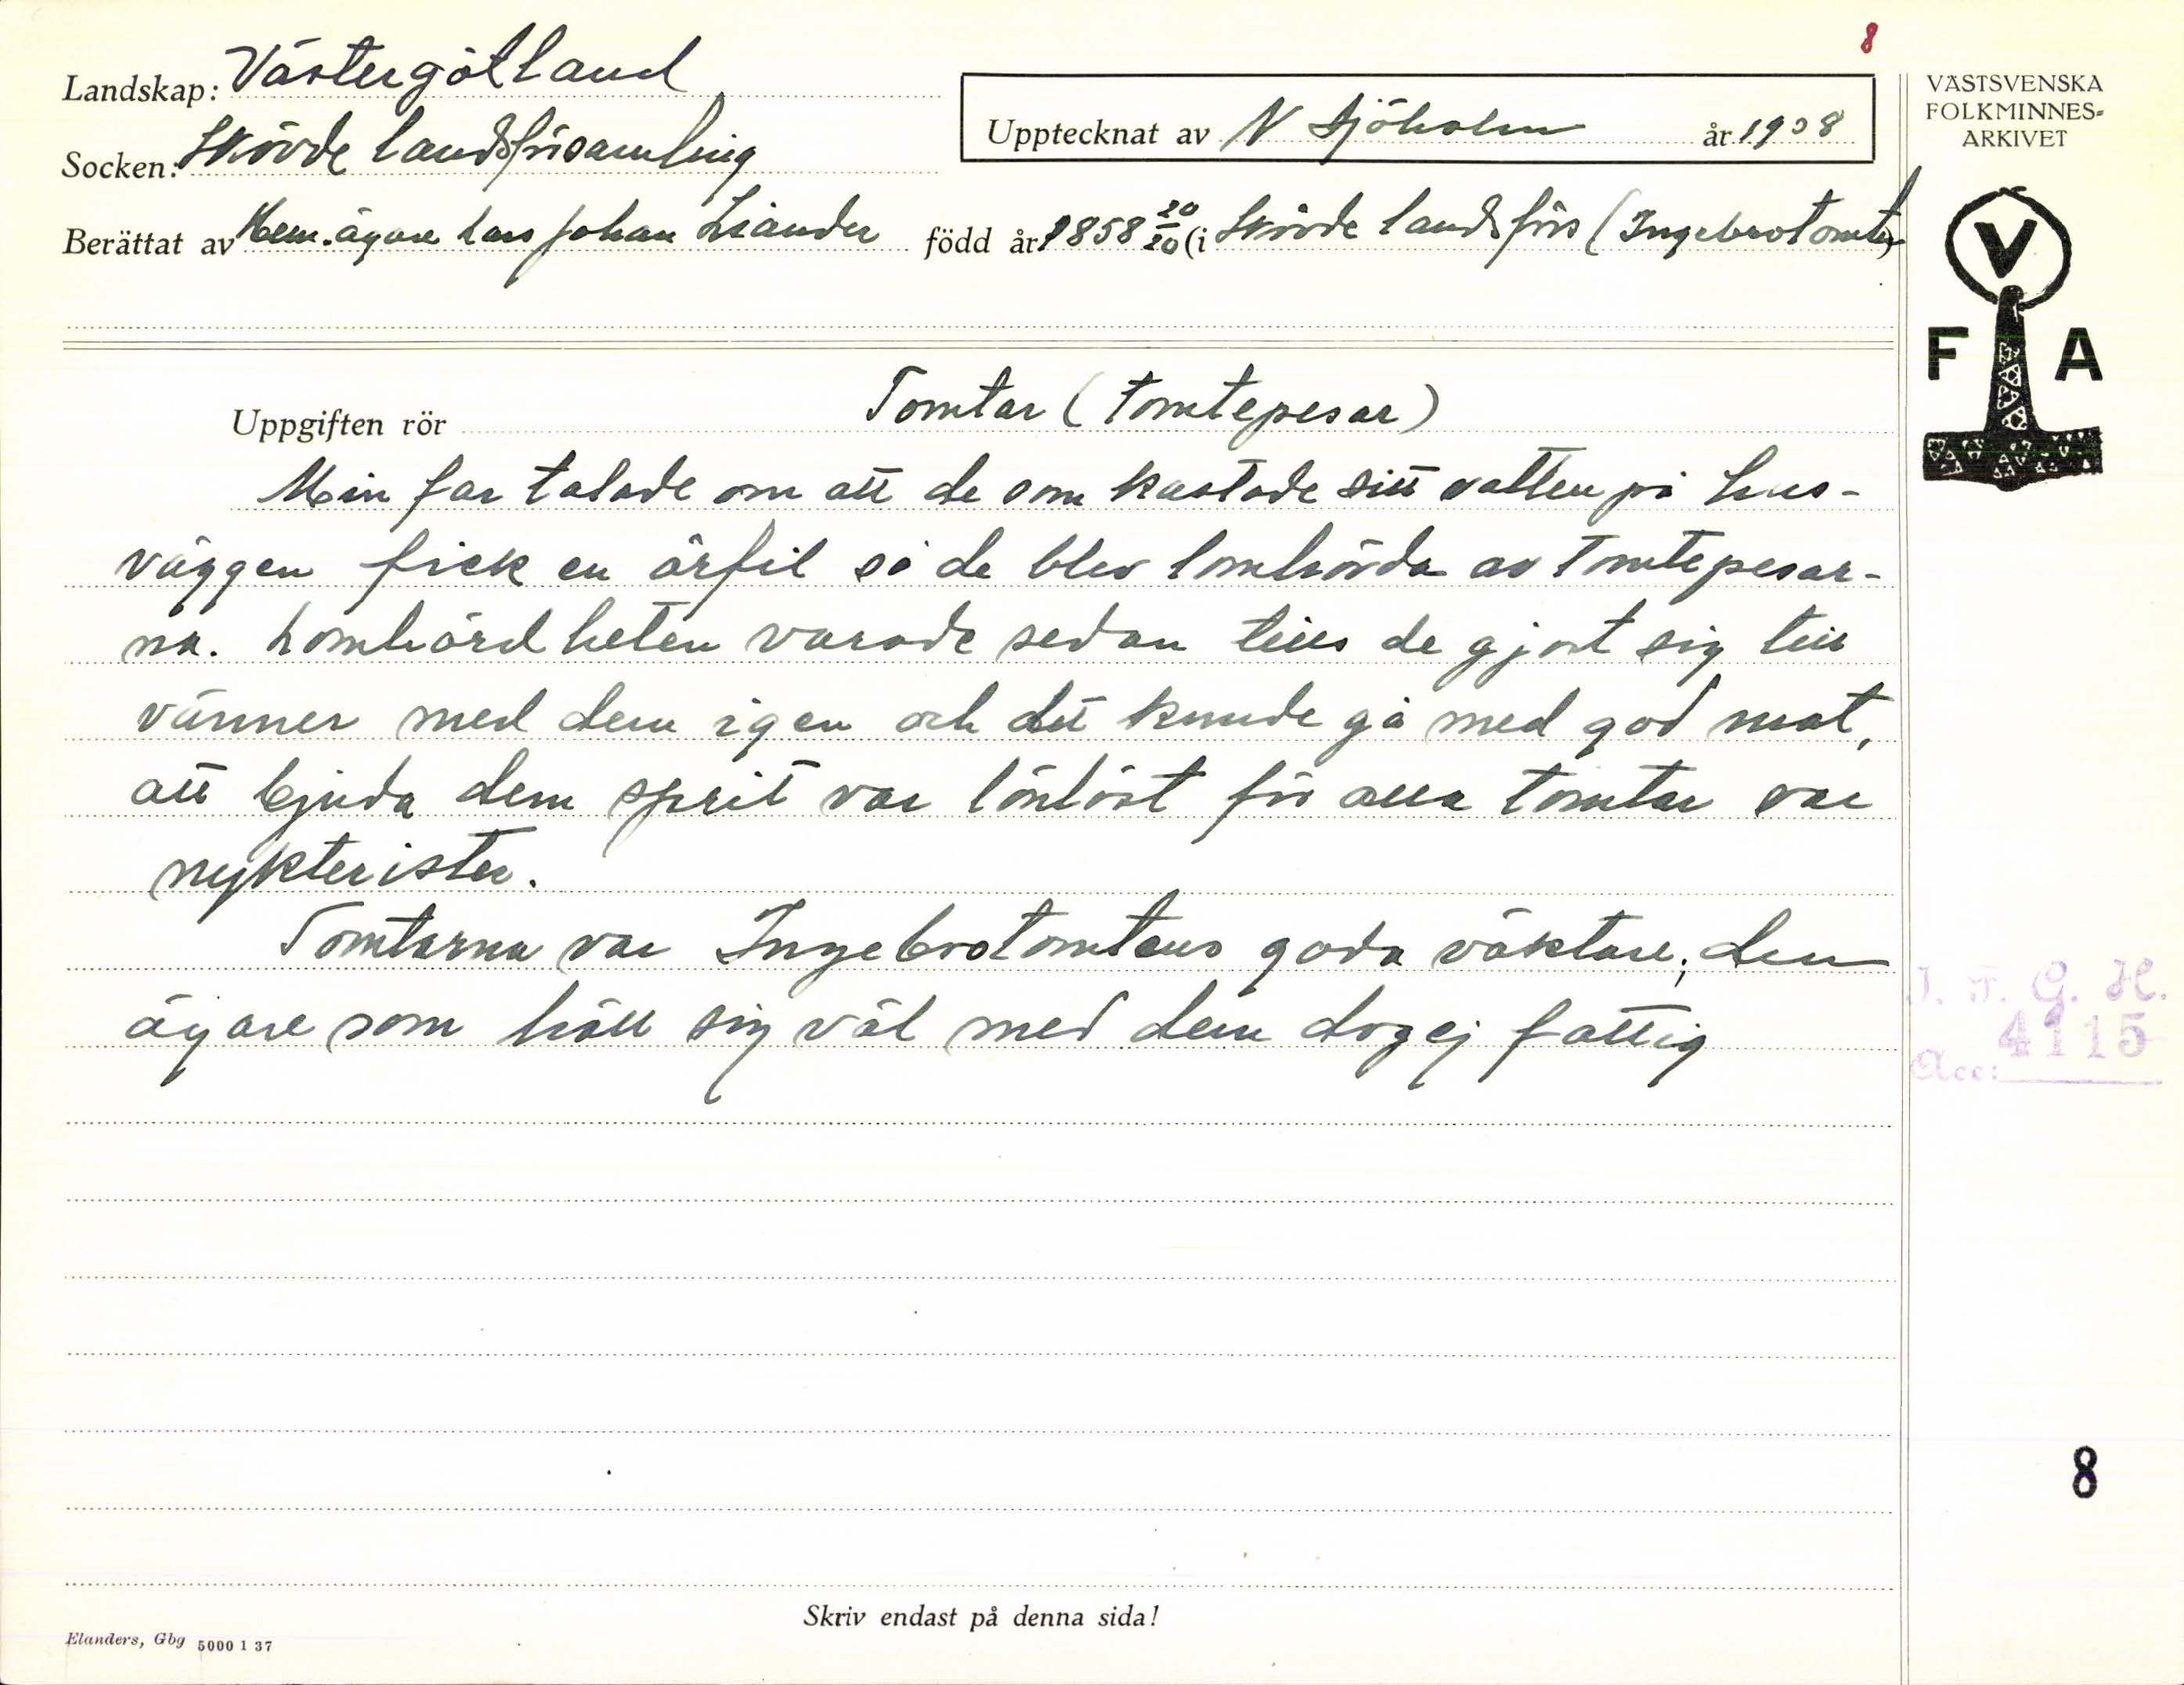 8
Landskap: Västergötland
Socken: Skövde landsförsamling
Upptecknat av N Sjöholm år 1938
VÄSTSVENSKA
FOLKMINNES-
ARKIVET
Berättat av Hem.ägare Lars Johan Liander född år 1858 (i Skövde landsförs (Ingebrotomten)
V
F A
Uppgiften rör Tomtar (tomtepesar)
Min far talade om att de som kastade sitt vatten på hus-
väggen fick en örfil så de blev lomhörda av tomtepesar-
na. Lomhördheten varade sedan tills de gjort sig till
vänner med dem igen och det kunde gå med god mat,
att bjuda dem sprit var lönlöst för alla tomtar var
nykterister.
Tomtarna var Ingebrotomtens goda väktare; den
ägare som höll sig väl med dem dog ej fattig
I. F. G. H.
Acc: 4115
8
Skriv endast på denna sida!
Elanders, Gbg 5000 1 37